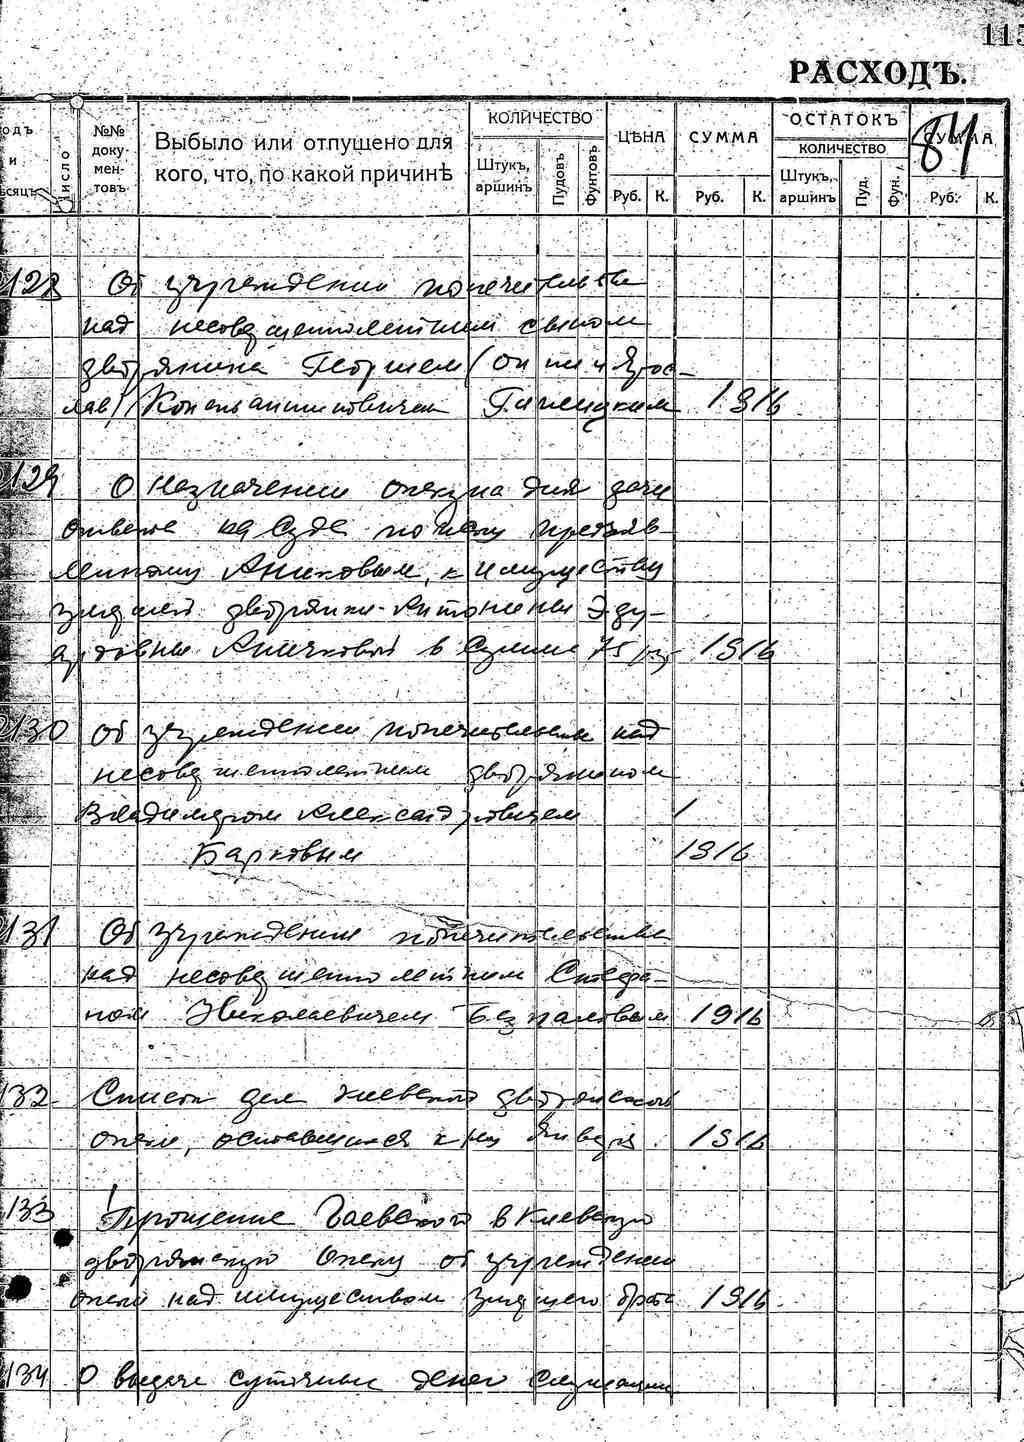 115
РАСХОДЪ.
84
одъ и есяцъ
Число
№№ доку-мен-товъ
Выбыло или отпущено для
кого, что, по какой причинѣ
КОЛИЧЕСТВО
Штукъ, аршинъ
Пудовъ
Фунтовъ
ЦѢНА
Руб. К.
СУММА
Руб. К.
ОСТАТОКЪ
КОЛИЧЕСТВО
Штукъ, аршинъ
Пуд.
Фун.
СУММА
Руб. К.
2128 Об учреждении попечительства
над несовершеннолетним сыном
дворянина Георгием (он же и Ярос-
лав) Константиновичем 1916
2129 О назначении опекуна для дачи
ответа на суде по иску предъяв-
ленному к имуществу
умершей дворянки Антонины Эду-
ардовны Аничковой в сумме 75 руб 1916
2130 Об учреждении попечительства над
несовершеннолетним дворянином
Владимиром Александровичем
Барковым 1916
2131 Об учреждении попечительства
над несовершеннолетним Стефа-
ном Николаевичем 1916
132 Список дел Киевской дворянской
опеки, оставшихся к 1му января 1916
133 Прошение Гаевского в Киевскую
дворянскую опеку об учреждении
опеки над имуществом умершего брата 1916
134 О выдаче суточных денег служащим